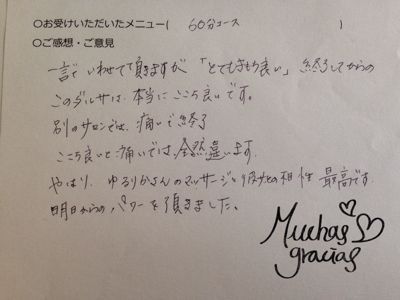 ○お受けいただいたメニュー( 60分コース )
○ご感想・ご意見
一言でいわせて頂きますが「とてもきもち良い」終了してからの
このダルサは、本当にここち良いです。
別のサロンでは、痛いで終了
ここち良いと痛いでは、全然違います。
やはり、ゆるりかさんのマッサージとの相性 最高です。
明日からのパワーを頂きました。
Muchas
gracias